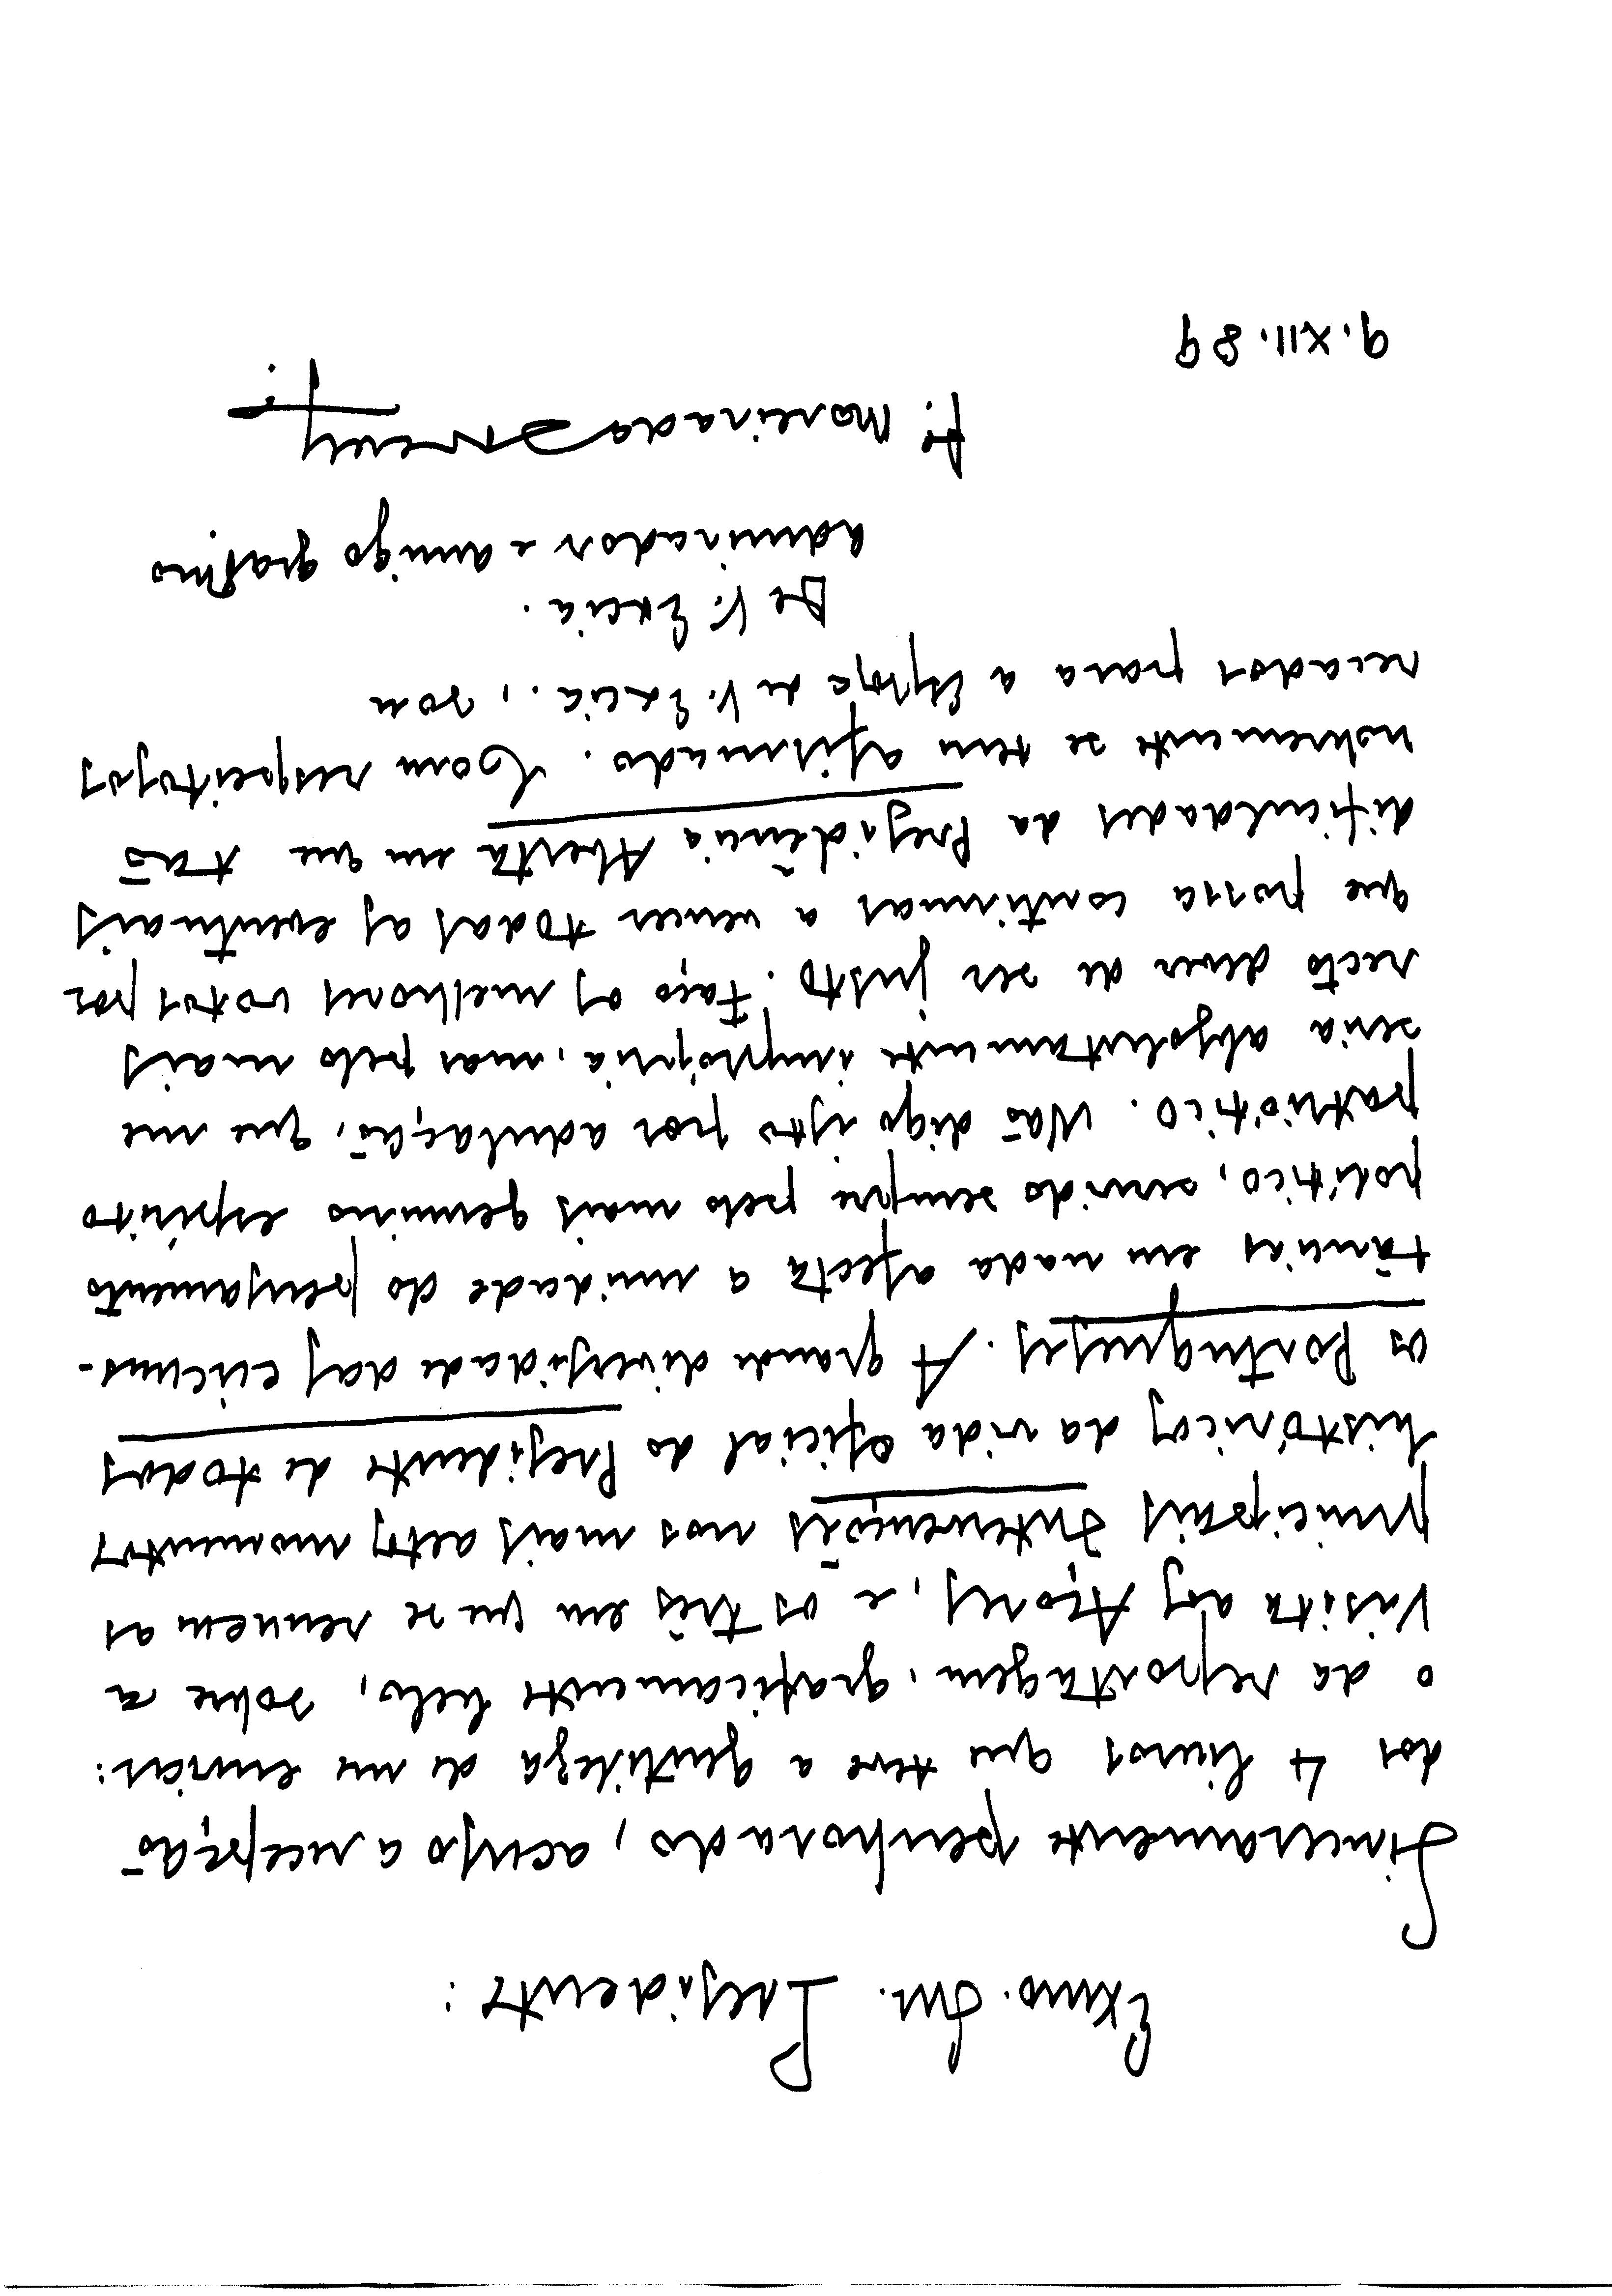 Exmo. Snr. Presidente:
Sinceramente penhorado, acuso a recepção
dos 4 livros que teve a gentileza de me enviar:
o da reportagem, graficamente belo, sobre a
Visita aos Açores, e os três em que se reunem as
principais Intervenções nos mais altos momentos
históricos da vida oficial do Presidente de todos
os Portugueses. A grande diversidade das circuns-
tâncias em nada afecta a unidade do pensamento
político, servido sempre pelo mais genuino espírito
patriótico. Não digo isto por adulação, que me
seria absolutamente imprópria, mas pelo mais
recto dever de ser justo. Faço os melhores votos por
que possa continuar a vencer todas as eventuais
dificuldades da Presidência Aberta em que tão
nobremente se tem afirmado. Com respeitosos
recados para a Esposa de V. Excia., sou
De V. Excia.
admirador e amigo gratmo
P. Moreira das Neves
9.XII.89